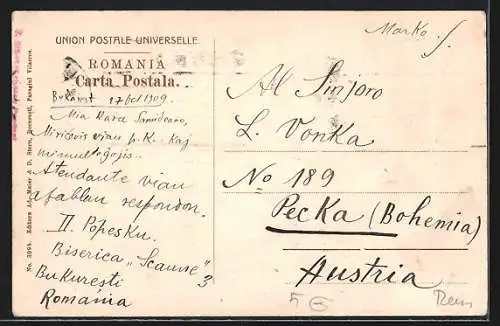 UNION POSTALE UNIVERSELLE
Marko
ROMANIA
Carta Postala.
Bukarest 1909.
Mia Kara Samideano,
Ricevis vian p. K. kaj
Atendante vian
afablan respondon.
II. Popesku.
Biserica „Scaune" 3
Bukuresti
Romania
Al Sinjoro
L. Vonka
No 189
Pecka (Bohemia)
Austria
No. 3994. Editura Ad. Maier & D. Stern, Bucuresti,